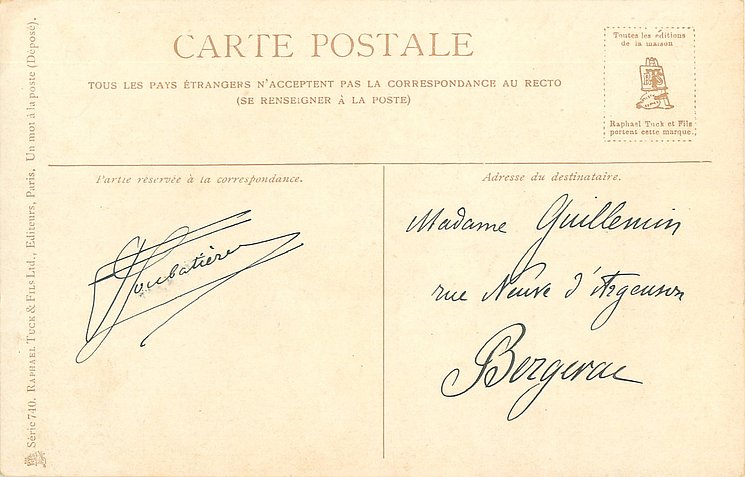 CARTE POSTALE
TOUS LES PAYS ÉTRANGERS N'ACCEPTENT PAS LA CORRESPONDANCE AU RECTO
(SE RENSEIGNER À LA POSTE)
Toutes les éditions
de la maison
Raphael Tuck et Fils
portent cette marque.
Partie réservée à la correspondance.
Adresse du destinataire.
Madame Guillemin
rue Neuve d'Argenson
Bergerac
Série 740. RAPHAEL TUCK & FILS LTD., Editeurs, Paris. Un mot à la poste (Déposé).